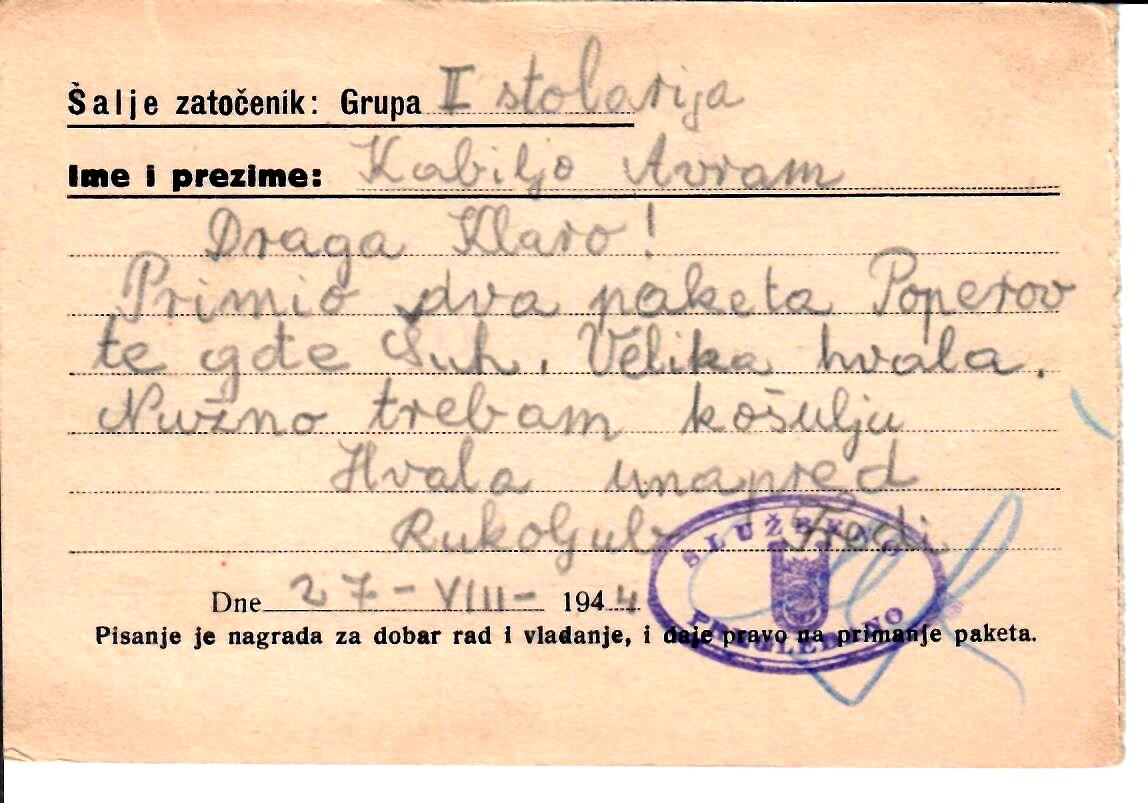 Šalje zatočenik: Grupa II stolarija
Ime i prezime: Kabiljo Avram
Draga Klaro!
Primio dva paketa Poperov
te gđe Šuh. Velika hvala.
Nužno trebam košulju
Hvala unapred
Rukoljub
Dne 27-VIII- 1944
Pisanje je nagrada za dobar rad i vladanje, i daje pravo na primanje paketa.
SLUŽBENO
PREGLEDANO